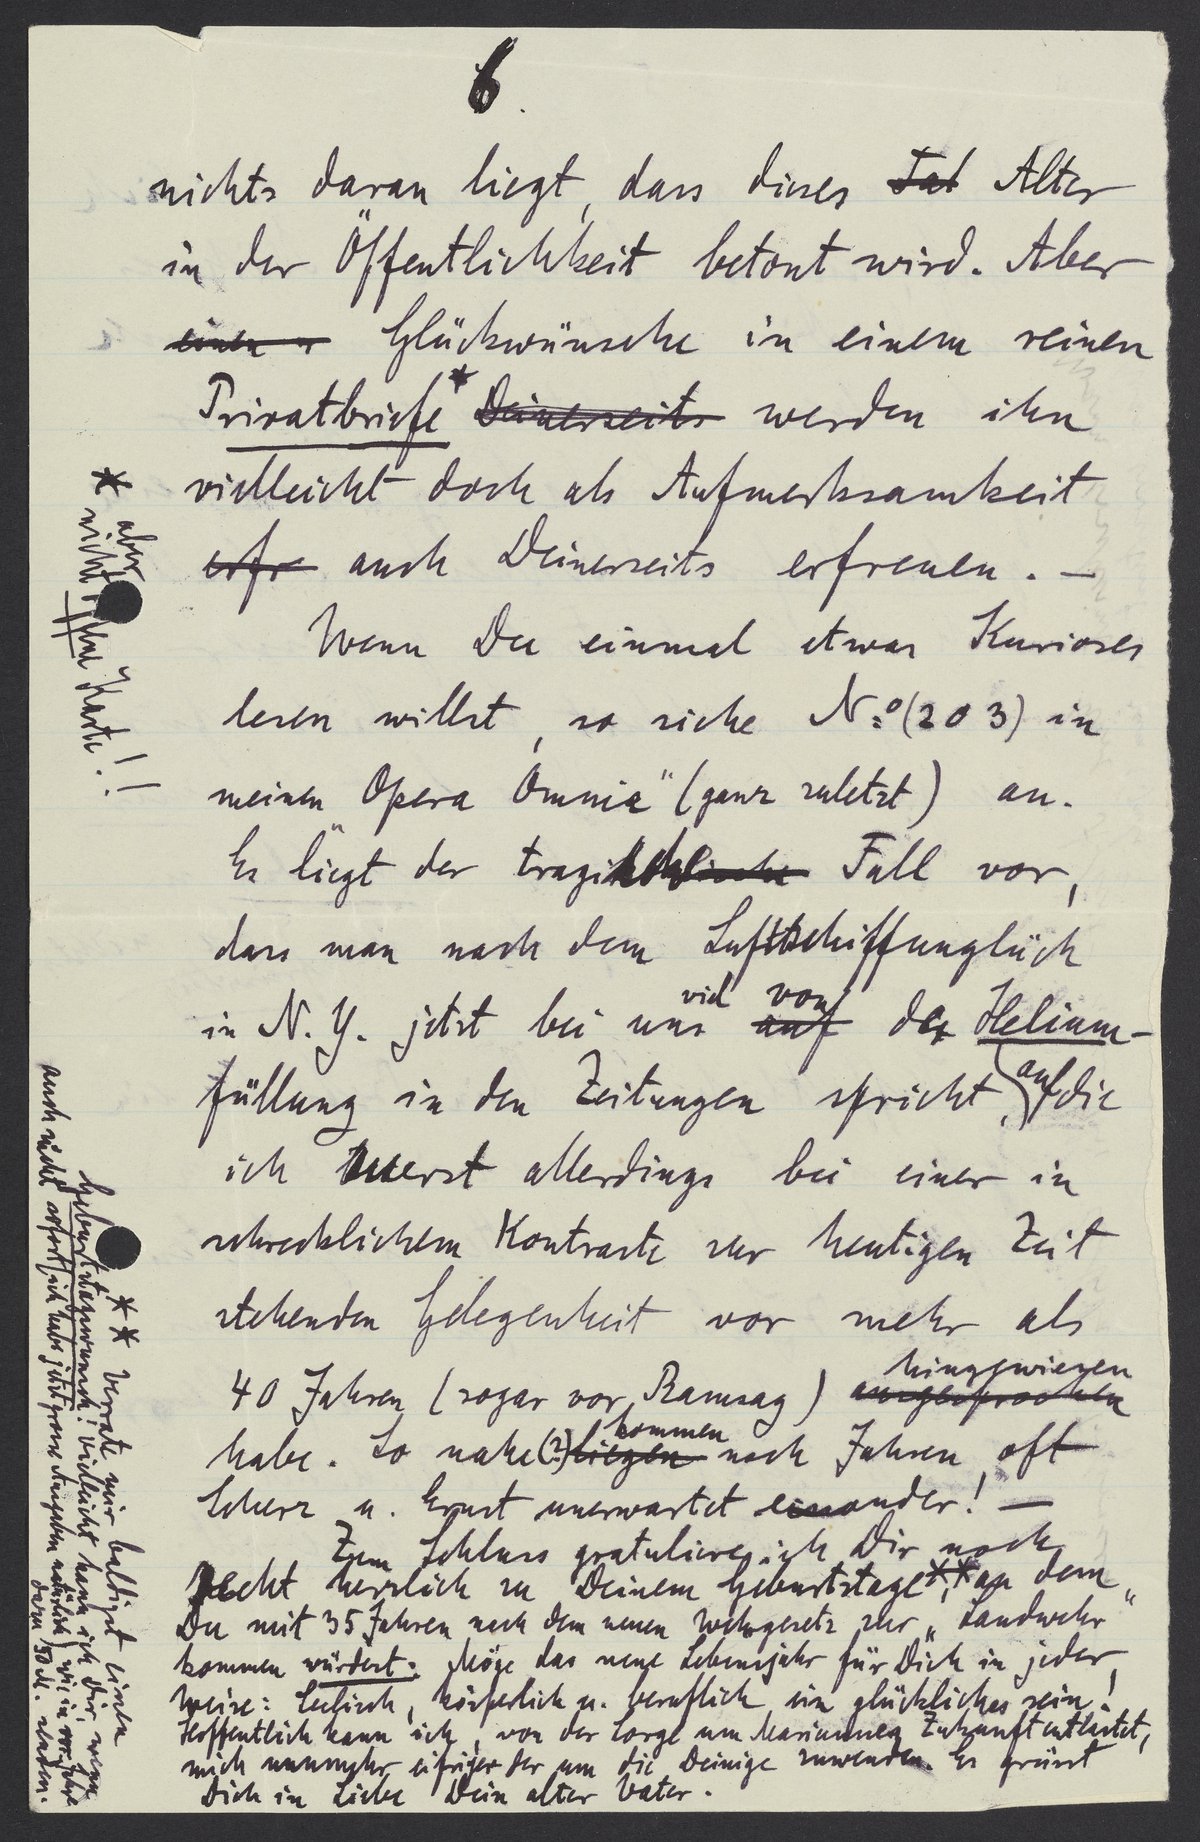 6.
nichts daran liegt, dass dieses Tat Alter
in der Öffentlichkeit betont wird. Aber
einen Glückwünsche in einem reinen
Privatbriefe * Deinerseits werden ihn
vielleicht doch als Aufmerksamkeit
erfre auch Deinerseits erfreuen. —
Wenn Du einmal etwas Kurioses
lesen willst, so siehe No (203) in
meinen „Opera Omnia" (ganz zuletzt) an.
Es liegt der Fall vor,
dass man nach dem Luftschiffunglück
viel von
in N. Y. jetzt bei uns auf der Helium-
füllung in den Zeitungen spricht, auf die
ich zuerst allerdings bei einer in
schrecklichem Kontraste zur heutigen Zeit
stehenden Gelegenheit vor mehr als
hingewiesen
40 Jahren (sogar vor Ramsay) ausgesprochen
habe. So nahe (?) liegen kommen nach Jahren oft
Scherz u. Ernst unerwartet einander! —
Zum Schluss gratuliere ich Dir noch
recht herzlich zu Deinem Geburtstage **, an dem
Du mit 35 Jahren nach dem neuen Wehrgesetz zur „Landwehr"
kommen würdest. Möge das neue Lebensjahr für Dich in jeder
Weise: Seelisch, körperlich u. beruflich ein glückliches sein!
Hoffentlich kann ich, von der Sorge um Mariannes Zukunft entlastet,
mich nunmehr eifriger der um die Deinige zuwenden. Es grüsst
Dich in Liebe Dein alter Vater.
* aber
nicht Karte!!
** Verrate mir baldigst einen
Geburtstagswunsch! Vielleicht kann ich Dir, wenn
auch nicht sofort (ich habe jetzt grosse Ausgaben natürlich) wie im vor. Jahre
dazu 50 M. senden.